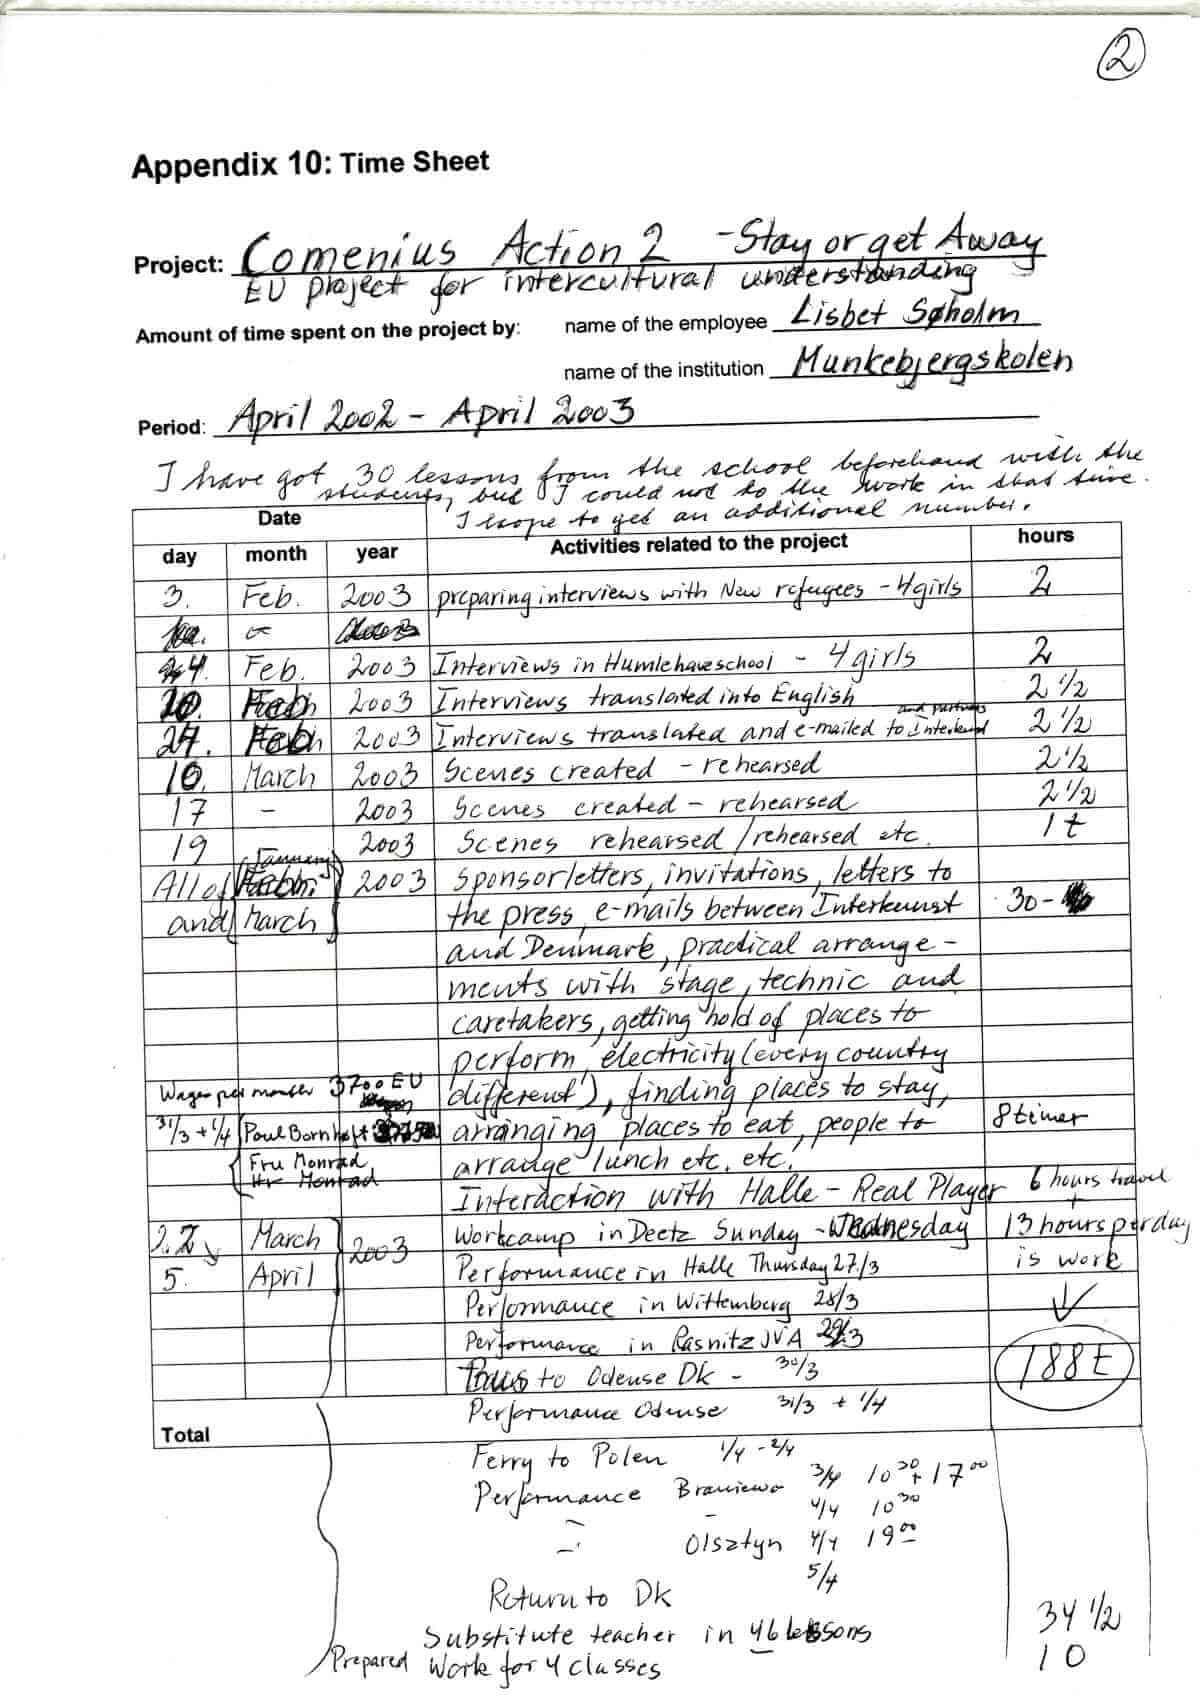 2
Appendix 10: Time Sheet
Project: Comenius Action 2 - Stay or get Away
EU project for intercultural understanding
Amount of time spent on the project by: name of the employee Lisbet Søholm
name of the institution Munkebjergskolen
Period: April 2002 - April 2003
I have got 30 lessons from the school beforehand with the
students, but I could not do the work in that time.
I hope to get an additional number.
Date
day month year Activities related to the project hours
3. Feb. 2003 preparing interviews with New refugees - 4 girls 2
4. Feb. 2003 Interviews in Humlehaveschool - 4 girls 2
10. Feb 2003 Interviews translated into English 2 1/2
and partners
24. Feb 2003 Interviews translated and e-mailed to Interkunst 2 1/2
10. March 2003 Scenes created - rehearsed 2 1/2
17 - 2003 Scenes created - rehearsed 2 1/2
19 2003 Scenes rehearsed / rehearsed etc. 1 t
January
All of 2003 Sponsorletters, invitations, letters to
and March the press, e-mails between Interkunst 30 -
and Denmark, practical arrange-
ments with stage, technic and
caretakers, getting hold of places to
perform, electricity (every country
Wages per month 3700 EU different), finding places to stay,
31/3 + 1/4 Poul Bornholt arranging places to eat, people to 8 timer
Fru Monrad arrange lunch etc. etc.
Hr Monrad
Interaction with Halle - Real Player 6 hours travel
+
22 March 2003 Workcamp in Deetz Sunday - Wednesday 13 hours per day
5. April Performance in Halle Thursday 27./3 is work
Performance in Wittemberg 28/3
Performance in Rasnitz JVA 29/3
to Odense Dk - 30/3 188 t
Performance Odense 31/3 + 1/4
Total
Ferry to Polen 1/4 - 2/4
Performance Braniewo 3/4 10 30 + 17 00
4/4 10 30
-"- Olsztyn 4/4 19 00
5/4
Return to DK
Substitute teacher in 46 lessons 34 1/2
Prepared work for 4 classes 10